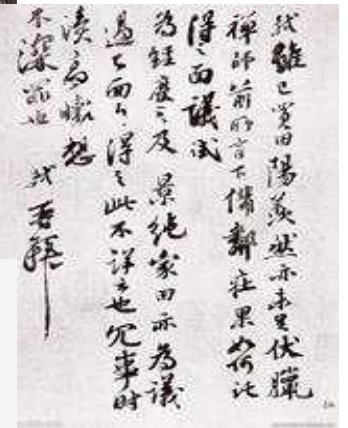 軾雖已買田陽羨然亦未足伏臘
禪師前所言下備鄰莊果如何託
得之面議試
為經度之及景純家田亦為議
過已面白得之此不詳云也冗事時
瀆高聽想
不深罪也軾再拜